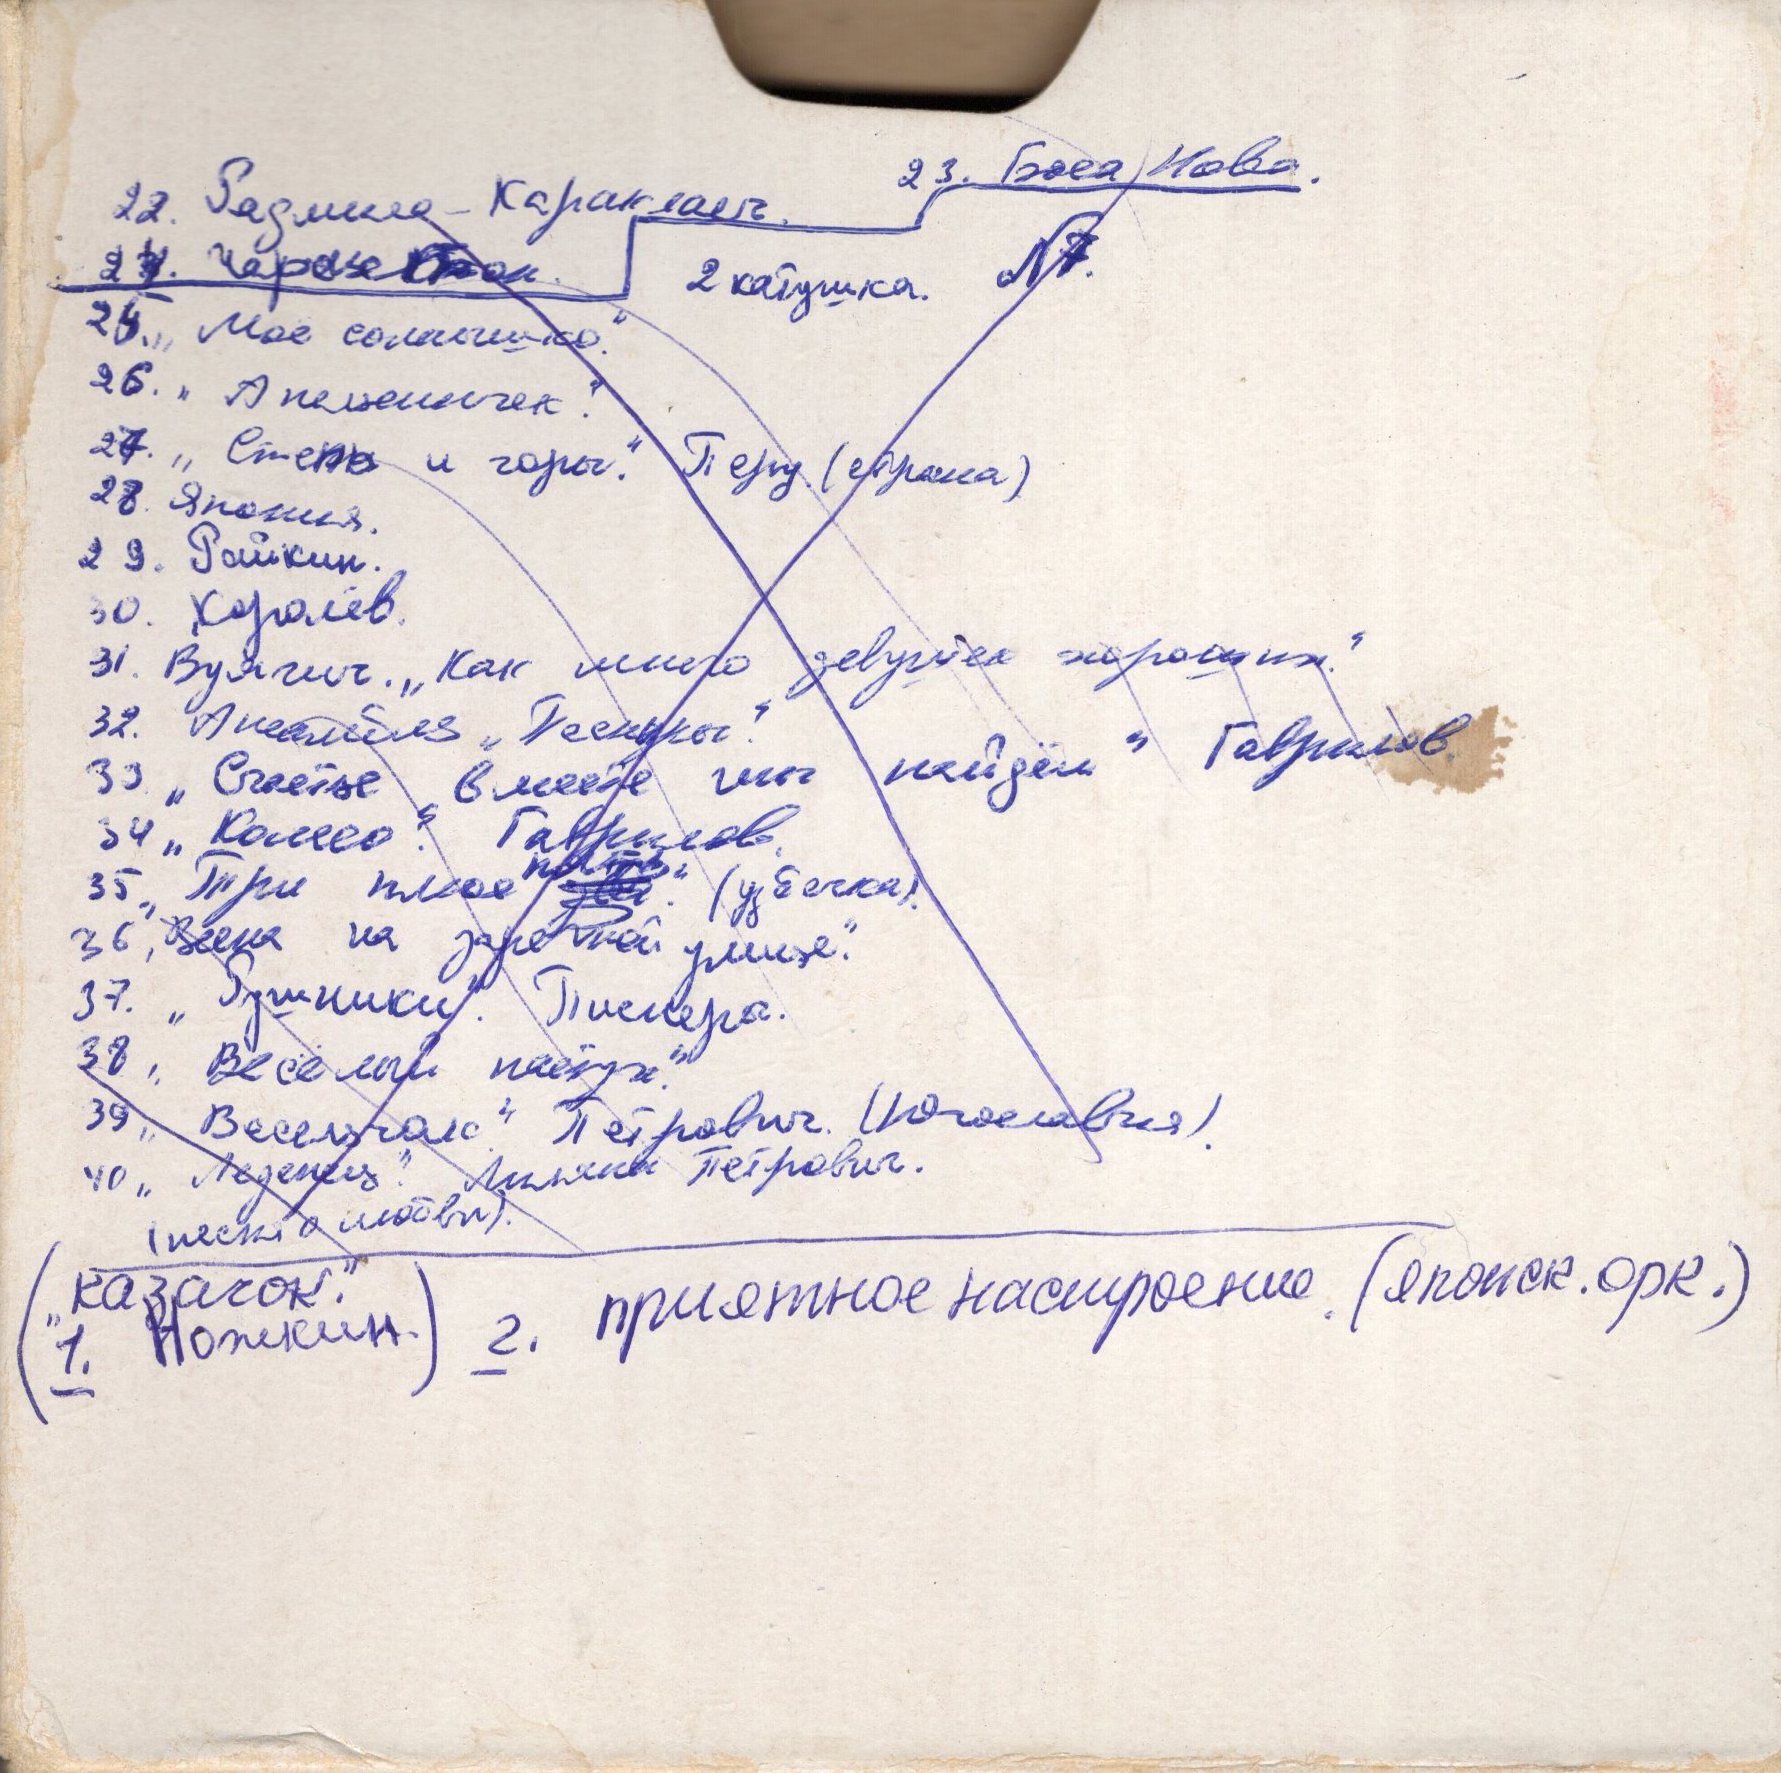 22. Радмила - Караклаич. 23. Боса Нова.
24. Чарльстон.
2 катушка. №7.
25. „Моё солнышко."
26. „Апельсинчик."
27. „Степь и горы." Перу (страна)
28. Япония.
29. Райкин.
30. Королёв.
31. Вуячич. „Как много девушек хороших."
32. Ансамбль „Песняры."
33 „Счастье вместе мы найдём" Гаврилов.
34 „Колесо." Гаврилов.
35 „Три плюс пять." (узбечка).
36 „Весна на заречной улице."
37. „Гушники". Пьехера.
38 „Весёлый пастух."
39 „Весельчак." Петрович. (Югославия).
40 „Леденец." Петрович.
(песня о любви).
(„казачок."
1. Ножкин.) 2. приятное настроение. (японск. орк.)